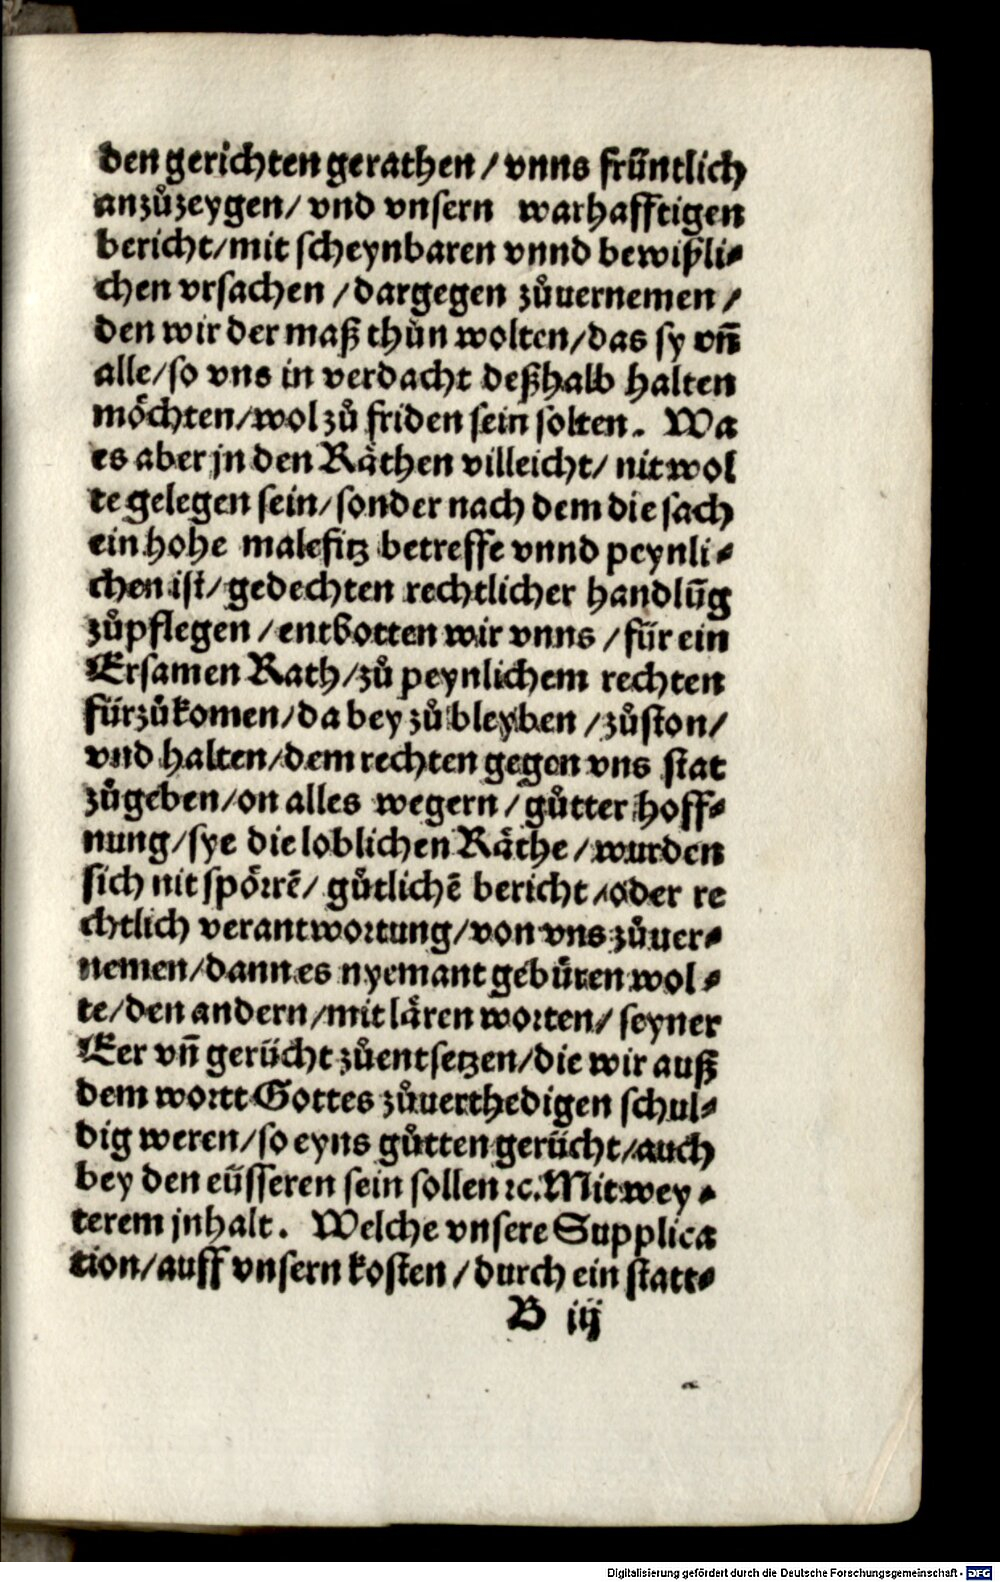 den gerichten gerathen / vnns früntlich
anzůzeygen / vnd vnsern warhafftigen
bericht / mit scheynbaren vnnd bewißli⸗
chen vrsachen / dargegen zůuernemen /
den wir der maß thůn wolten / das sy vñ
alle / so vns in verdacht deßhalb halten
möchten / wol zů friden sein solten. Wa
es aber jn den Räthen villeicht / nit wol
te gelegen sein / sonder nach dem die sach
ein hohe malefitz betreffe vnnd peynli⸗
chen ist / gedechten rechtlicher handlūg
zůpflegen / entbotten wir vnns / für ein
Ersamen Rath / zů peynlichem rechten
fürzůkomen / da bey zů bleyben / zůston /
vnd halten / dem rechten gegen vns stat
zůgeben / on alles wegern / gůtter hoff⸗
nung / sye die loblichen Räthe / wurden
sich nit spörrē / gůtlichē bericht / oder re
chtlich verantwortung / von vns zůuer⸗
nemen / dann es nyemant gebüren wol⸗
te / den andern / mit lären worten / seyner
Eer vñ gerücht zůentsetzen / die wir auß
dem wortt Gottes zůuerthedigen schul⸗
dig weren / so eyns gůtten gerücht / auch
bey den eüsseren sein sollen ꝛc. Mit wey⸗
terem jnhalt. Welche vnsere Supplica
tion / auff vnsern kosten / durch ein statt⸗
B iij
Digitalisierung gefördert durch die Deutsche Forschungsgemeinschaft - DFG